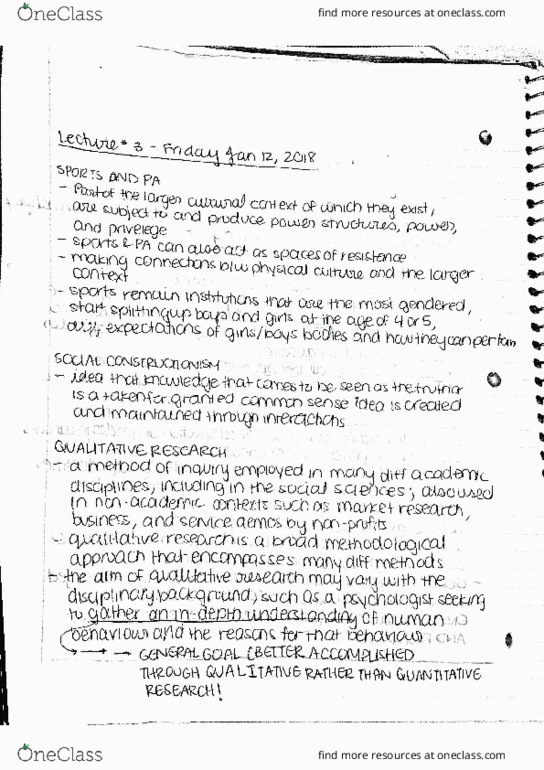 OneClass
find more resources at oneclass.com
Lecture # 3 - Friday Jan 12, 2018
SPORTS AND PA
- Part of the larger cultural context of which they exist,
are subject to and produce power structures, power,
and privelege
- sports & PA can also act as spaces of resistance
- making connections b/w physical culture and the larger
context
- sports remain institutions that are the most gendered,
start splitting up boys and girls at the age of 4 or 5,
expectations of girls/boys bodies and how they can perform
SOCIAL CONSTRUCTIONISM
- idea that knowledge that comes to be seen as the truth or
is a taken for granted common sense idea is created
and maintained through interactions
QUALITATIVE RESEARCH
- a method of inquiry employed in many diff academic
disciplines, including in the social sciences, also used
in non-academic contexts such as market research,
business, and service demos by non-profits
qualitative research is a broad methodological
approach that encompasses many diff methods
the aim of qualitative research may vary with the
disciplinary background, such as a psychologist seeking
to gather an in-depth understanding of human
behaviour and the reasons for that behaviour
- GENERAL GOAL (BETTER ACCOMPLISHED
THROUGH QUALITATIVE RATHER THAN QUANTITATIVE
RESEARCH!
OneClass
find more resources at oneclass.com